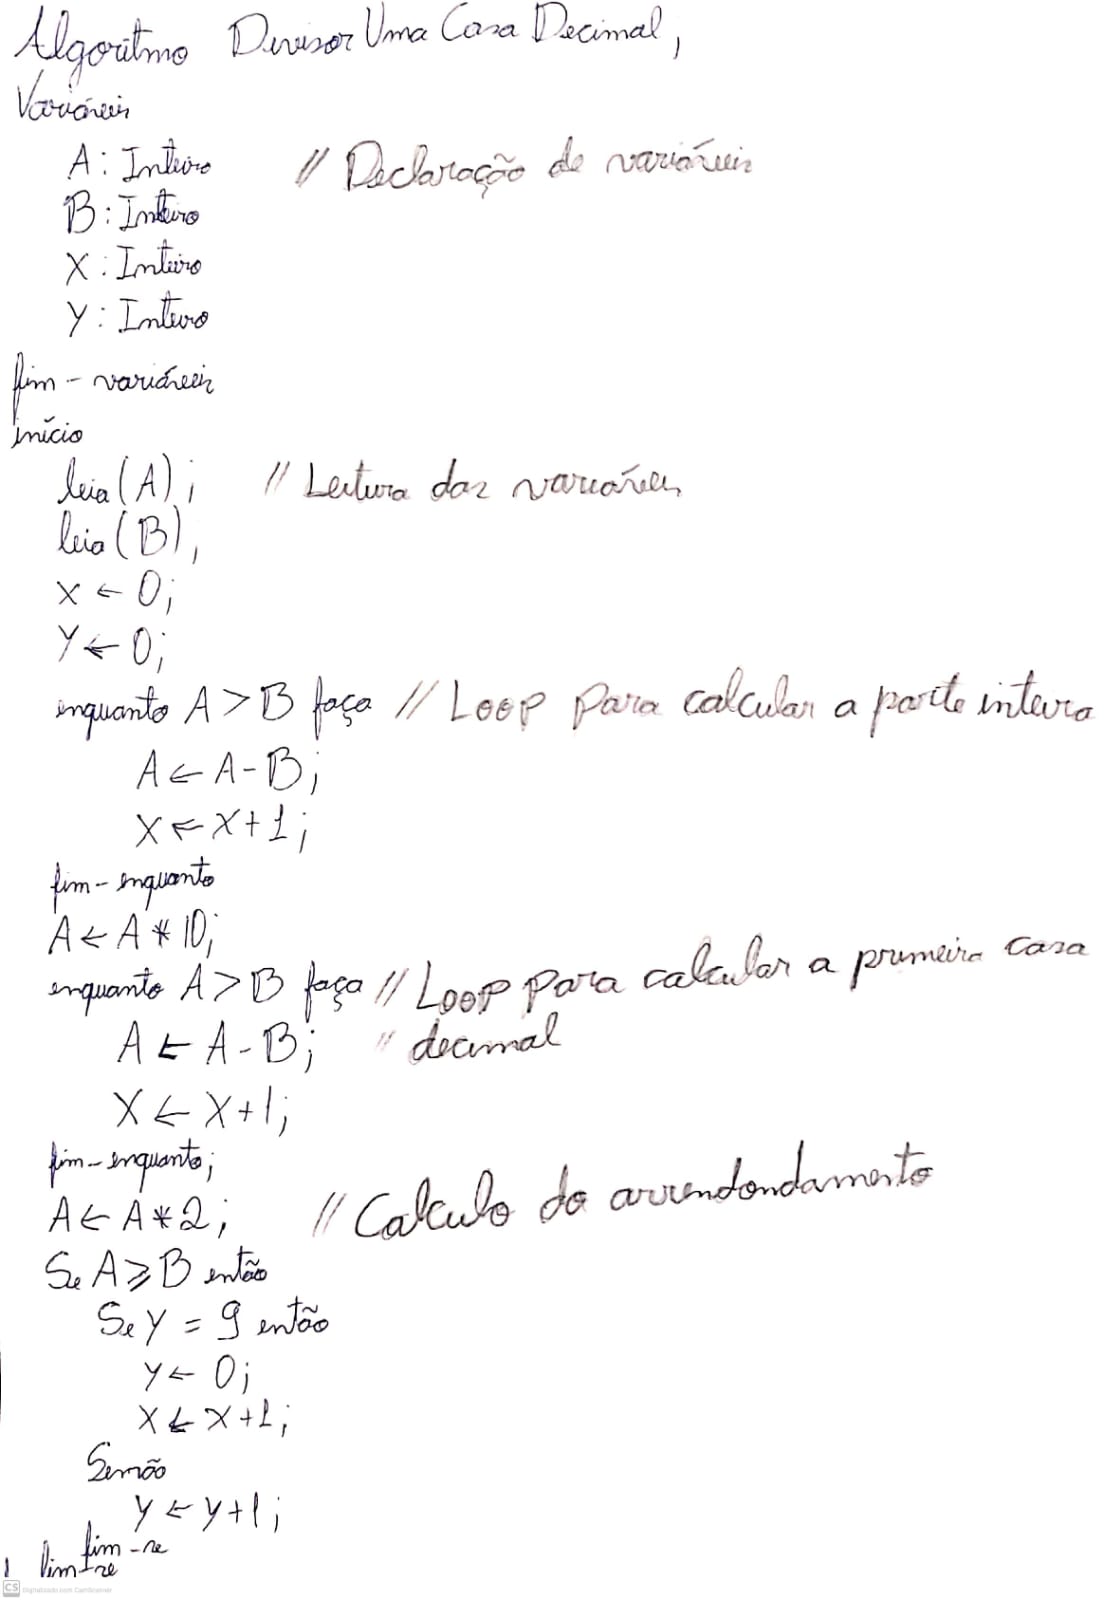 Algoritmo Divisor Uma Casa Decimal;
Variáveis
A : Inteiro // Declaração de variáveis
B : Inteiro
X : Inteiro
Y : Inteiro
fim - variáveis
início
leia (A) ; // Leitura das variáveis
leia (B) ;
X ← 0;
Y ← 0;
enquanto A > B faça // Loop para calcular a parte inteira
A ← A - B;
X ← X + 1;
fim - enquanto
A ← A * 10;
enquanto A > B faça // Loop para calcular a primeira casa
A ← A - B; // decimal
X ← X + 1;
fim - enquanto;
A ← A * 2; // Calculo do arrendondamento
Se A ⩾ B então
Se Y = 9 então
Y ← 0;
X ← X + 1;
Senão
Y ← Y + 1;
fim - se
fim - se
CS Digitalizado com CamScanner